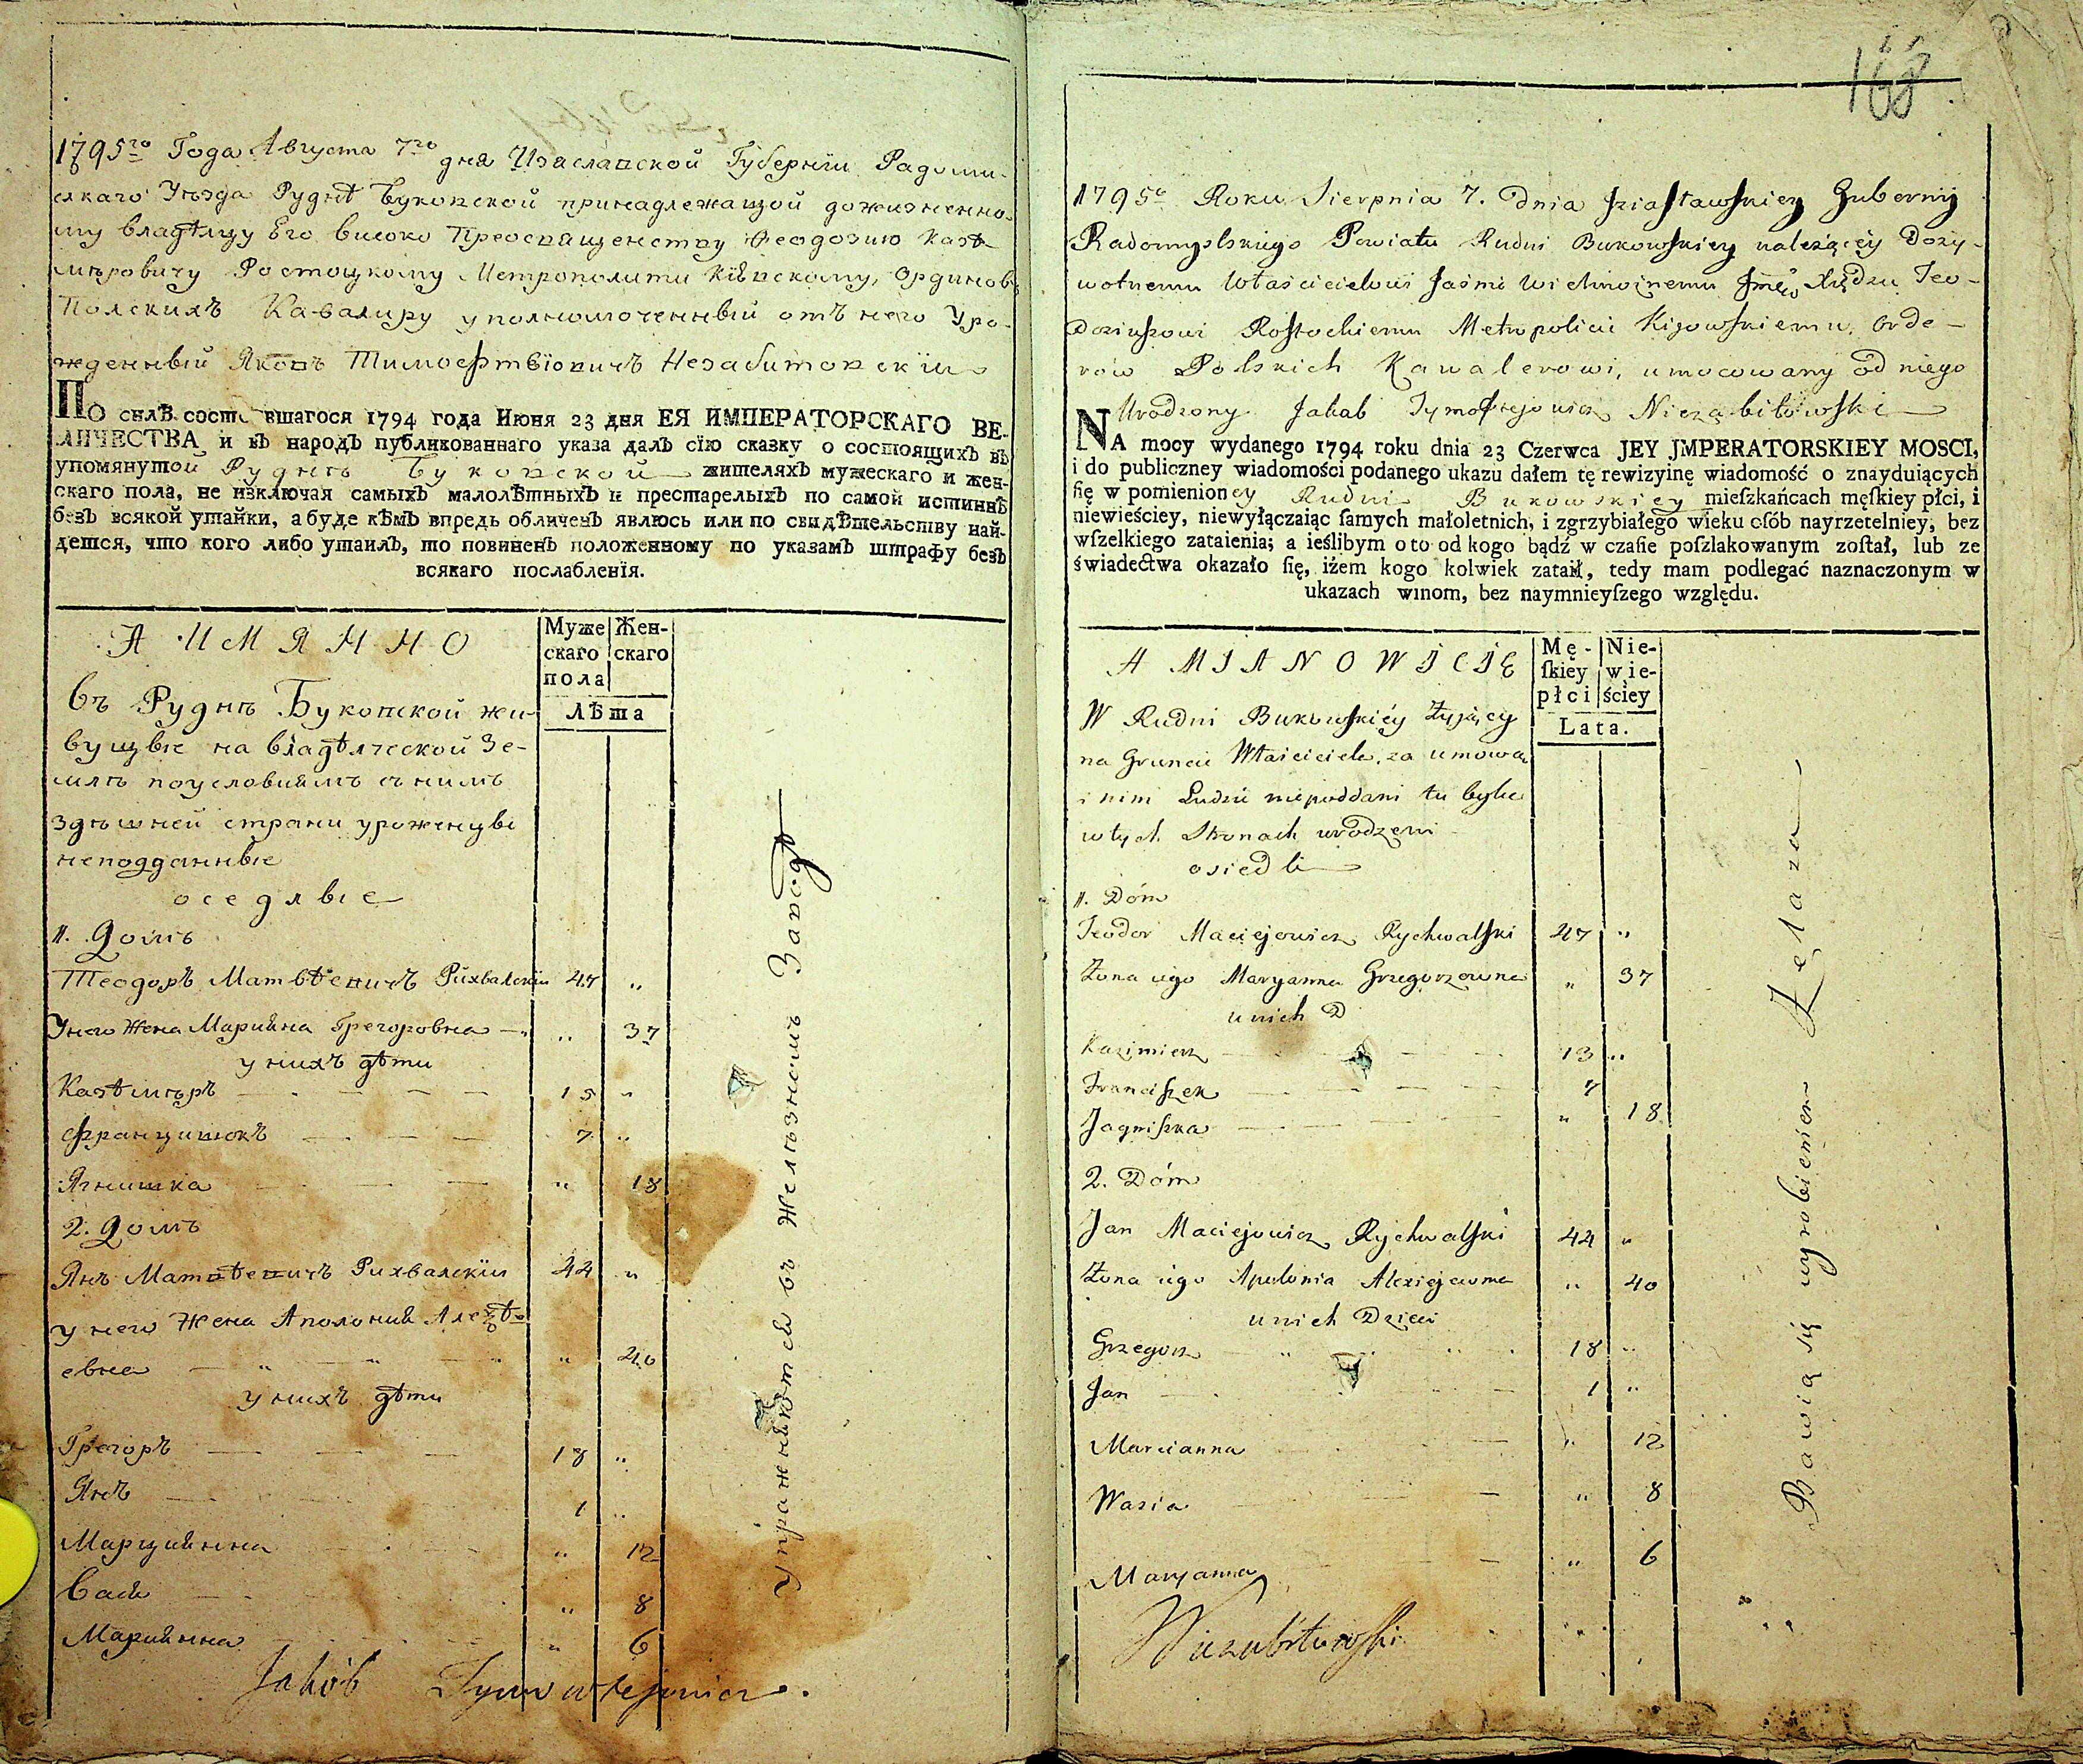 1795го Года Августа 7го дня Изаславской Губернїи Радоми-
слкаго Уѣзда Руднѣ Буковской принадлежащой дожизненно-
му владѣлцу Его високо Преосвященству Феодозию Казѣ-
мѣровичу Ростоцкому Метрополити Кіевскому, Ординовъ
Полскихъ Кавалиру уполномоченный отъ него Уро-
жденный Яковъ Тимосфтвїовичъ Незабитовскїи
По силѣ состоявшагося 1794 года Июня 23 дня ЕЯ ИМПЕРАТОРСКАГО ВЕ-
ЛИЧЕСТВА и въ народъ публикованнаго указа далъ сїю сказку о состоящихъ въ
упомянутой Руднѣ Буковской жителяхъ мужескаго и жен-
скаго пола, не изключая самыхъ малолѣтныхъ и престарелыхъ по самой истиннѣ
безъ всякой утайки, а буде кѣмъ впредь обличенъ явлюсь или по свидѣтельству най-
дется, что кого либо утаилъ, то повиненъ положенному по указамъ штрафу безъ
всякаго послабленїя.
А ИМЯННО
Муже Жен-
скаго скаго
пола
Лѣта
въ Руднѣ Буковской жи-
вущые на владѣлческой зе-
млѣ поусловиямъ снимъ
здѣшней страни уроженцы
неподданные
оседлые
1. Домъ
Теодоръ Матвѣевичъ Рихвалскїи 47 "
Унего Жена Мариянна Грегоровна " 37
у нихъ дѣти
Казѣмѣръ 15 "
Францишокъ 7 "
Ягнишка " 18
2. Домъ
Янъ Матвѣевичъ Рихвалскїи 44 "
у него Жена Аполония Алеѯѣ-
евна " 40
у нихъ дѣти
Грегоръ 18 "
Янъ 1 "
Марциянна " 12
Вася " 8
Мариянна " 6
Jakób Tymotejowicz.
Упражняются въ Желѣзномъ Заводѣ
168
1795o Roku Sierpnia 7. Dnia Iziasławskiey Guberny
Radomyslskiego Powiatu Rudni Bukowskiey należącey Doży-
wotnemu Właścicielowi Jaśnie Wielmożnemu Xiędzu Teo-
doziuszowi Rostockiemu Metropolicie Kijowskiemu, Orde-
rów Polskich Kawalerowi, umocowany od niego
Urodzony Jakab Tymofiejowicz Niezabitowski
NA mocy wydanego 1794 roku dnia 23 Czerwca JEY JMPERATORSKIEY MOSCI,
i do publiczney wiadomości podanego ukazu dałem tę rewizyinę wiadomość o znayduiących
ſię w pomienioney Rudni Bukowskiey mieſzkańcach męſkiey płci, i
niewieściey, niewyłączaiąc ſamych małoletnich, i zgrzybiałego wieku osób nayrzetelniey, bez
wſzelkiego zataienia; a ieślibym o to od kogo bądź w czaſie poſzlakowanym zoſtał, lub ze
świadectwa okazało ſię, iżem kogo kolwiek zataił, tedy mam podlegać naznaczonym w
ukazach winom, bez naymnieyſzego względu.
A MIANOWICIE
Mę- Nie-
ſkiey wie-
płci ściey
Lata.
W Rudni Bukowskiéy Żyjącey
na Gruncie Właściciela, za umową
z nim Ludzie niepoddani tu bylce
w tych Stronach urodzeni
osiedli
1. Dóm
Teodor Maciejowicz Rychwalſki 47 "
Żona iego Maryanna Grzegorzowna " 37
u nich D
Kazimierz 13 "
Franciſzek 7
Jagniſzka " 18
2. Dóm
Jan Maciejowicz Rychwalſki 44 "
Żona iego Apolonia Alexiejewna " 40
u nich Dzieci
Grzegorz 18 "
Jan 1 "
Marcianna " 12
Wasia " 8
Maryanna " 6
Niezabitowſki
Bawią się wyrobieniem Żelaza